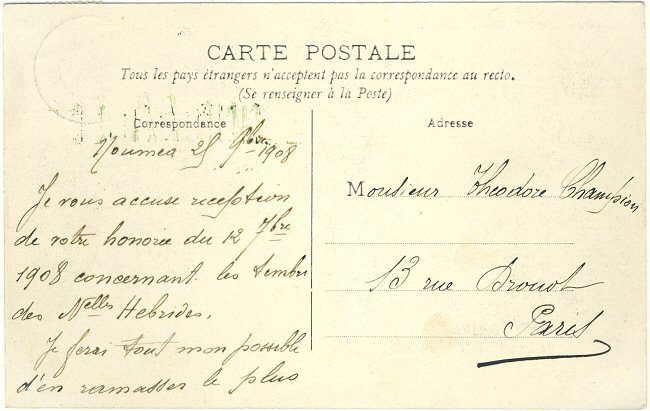 CARTE POSTALE
Tous les pays étrangers n'acceptent pas la correspondance au recto.
(Se renseigner à la Poste)
Correspondance
Adresse
Noumea 25 9bre 1908
Je vous accuse reception
de votre honorée du 12 7bre
1908 concernant les timbres
des Nelles Hebrides.
Je ferai tout mon possible
d'en ramasser le plus
Monsieur Theodore Champion
13 rue Drouot
Paris